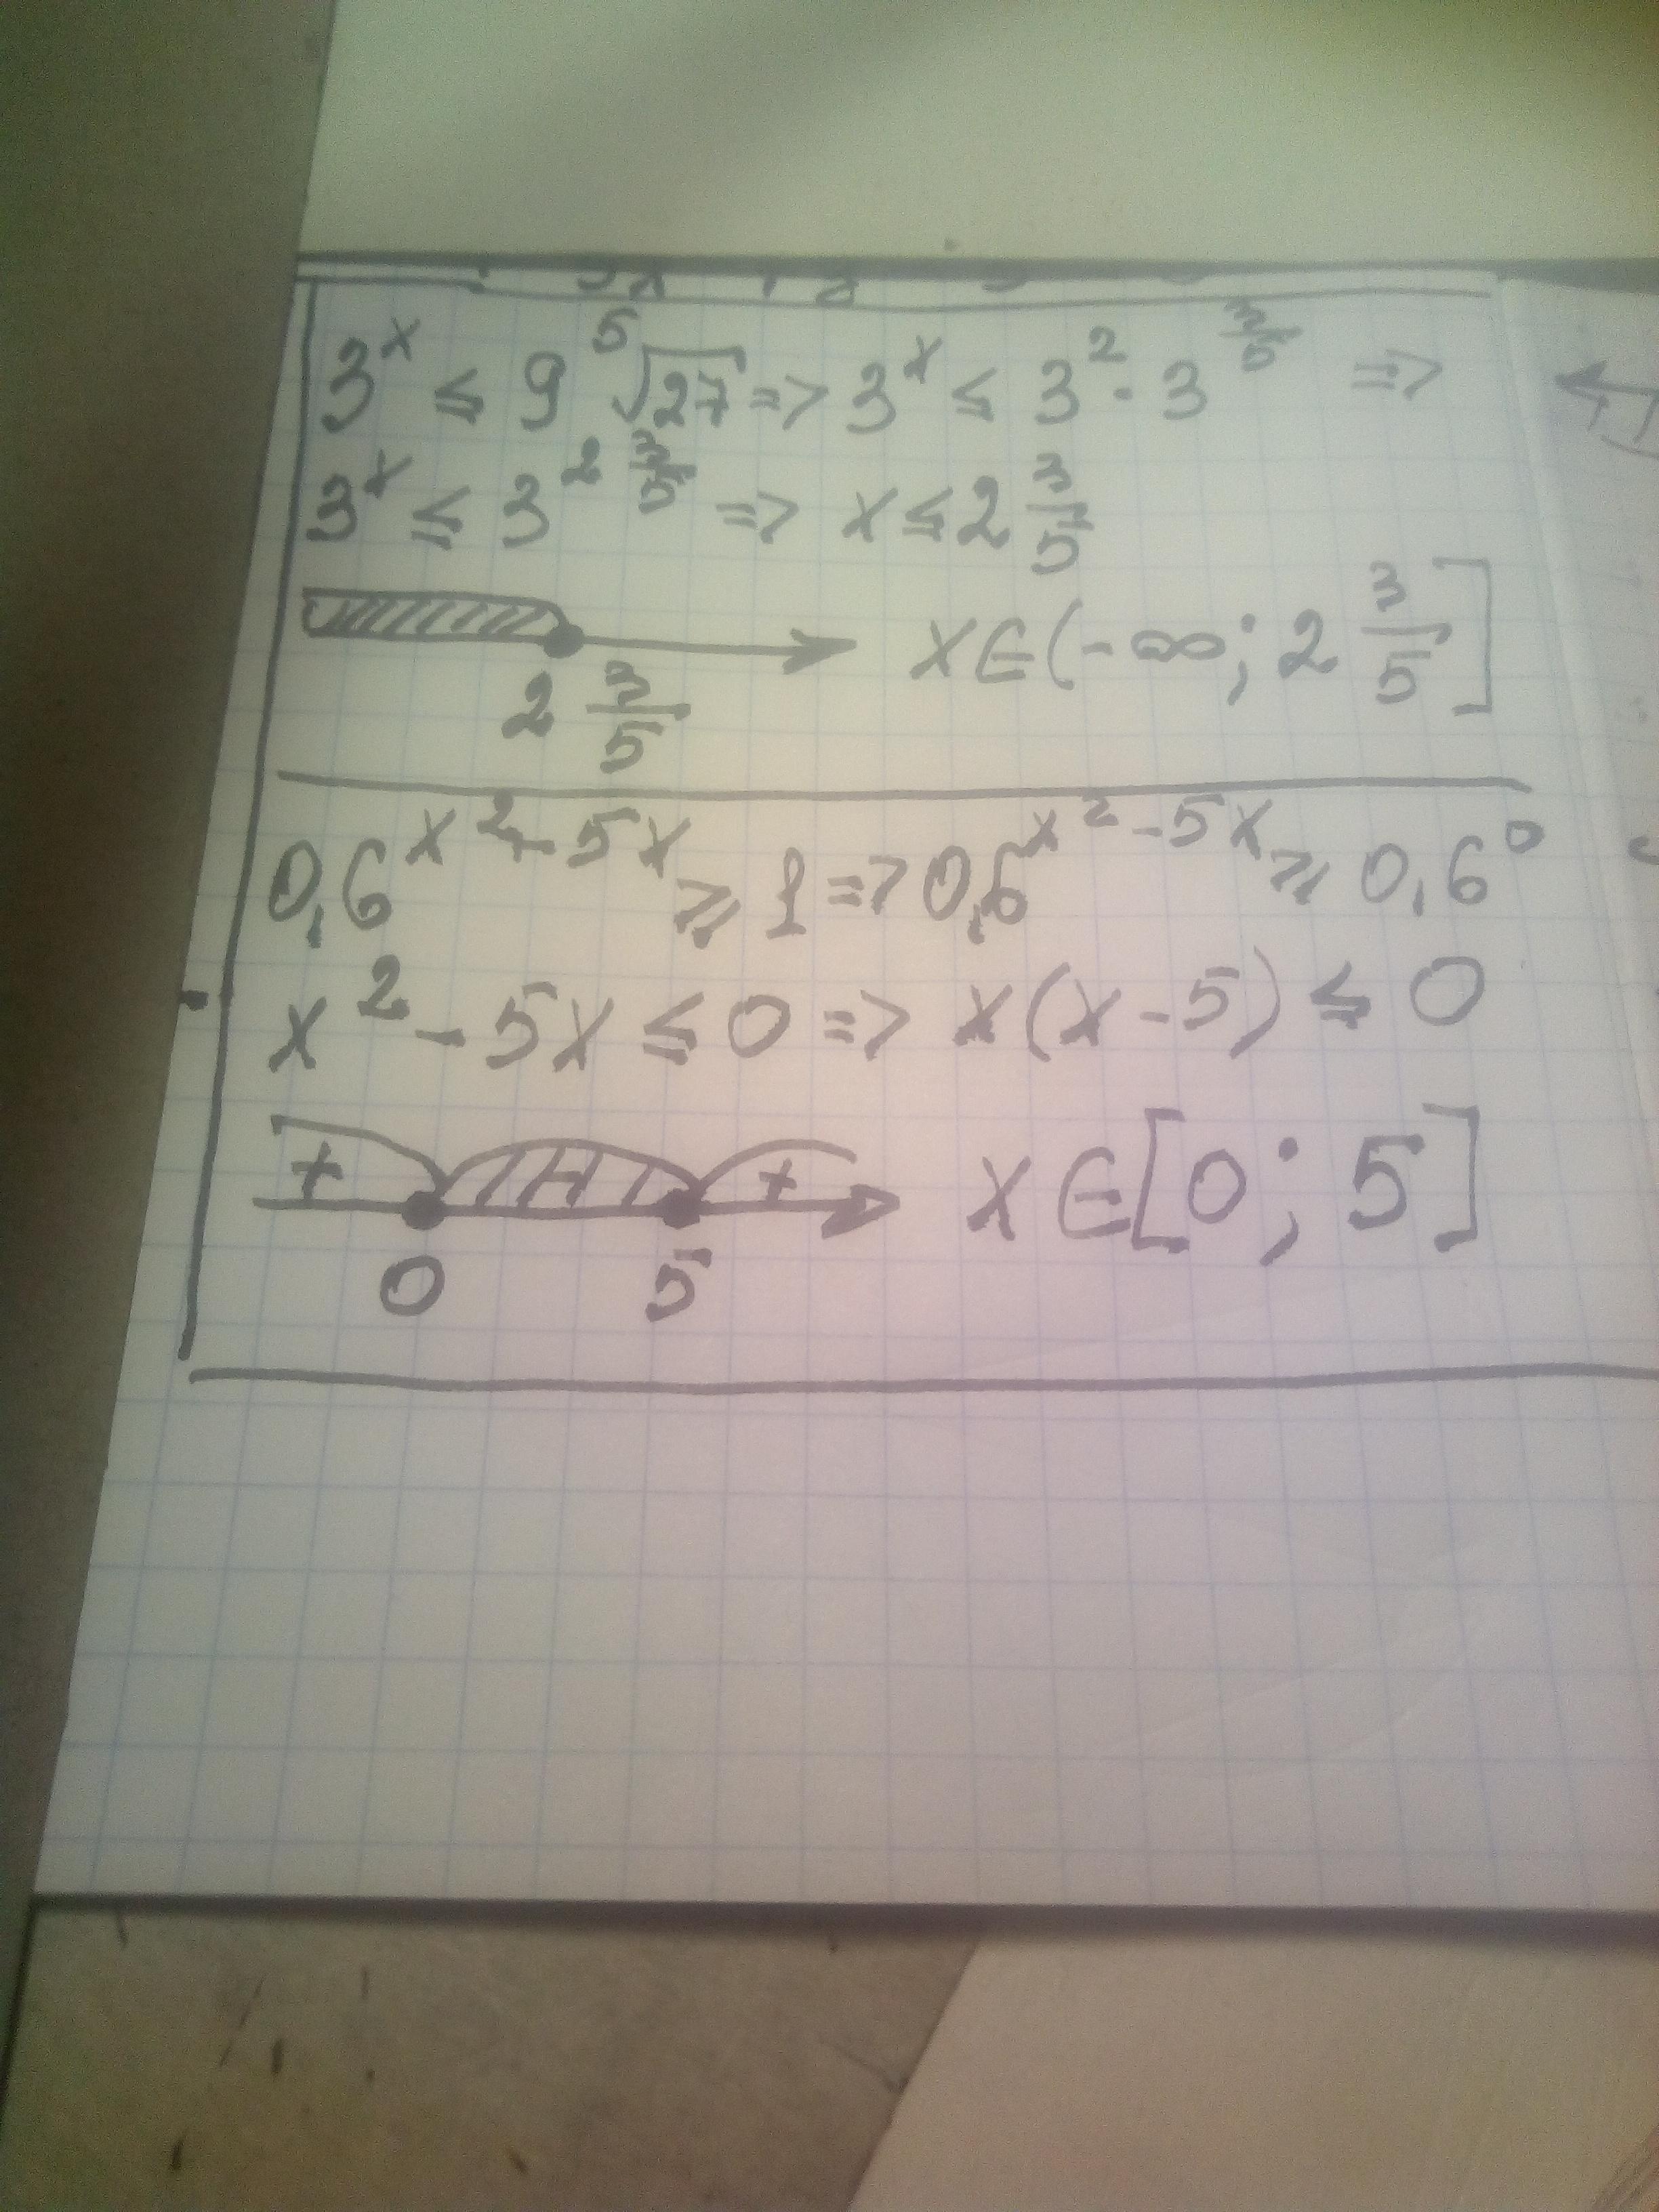 3ˣ ≤ 9 ⁵√27 => 3ˣ ≤ 3² · 3^(3/5) =>
3ˣ ≤ 3^(2 3/5) => x ≤ 2 3/5
x ∈ (-∞; 2 3/5]
2 3/5
0,6^(x²-5x) ≥ 1 => 0,6^(x²-5x) ≥ 0,6⁰
x² - 5x ≤ 0 => x(x-5) ≤ 0
+ - + x ∈ [0; 5]
0 5